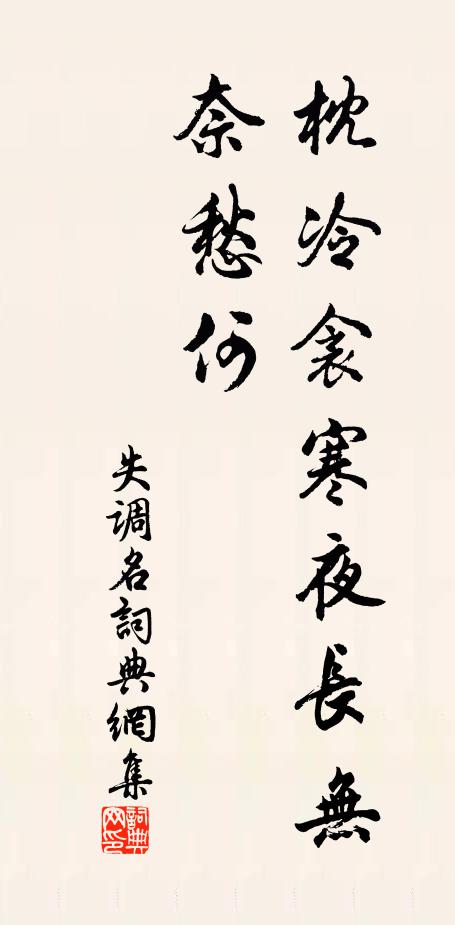 枕冷衾寒夜長無
奈愁何
失调名詞典網集
詞典网印